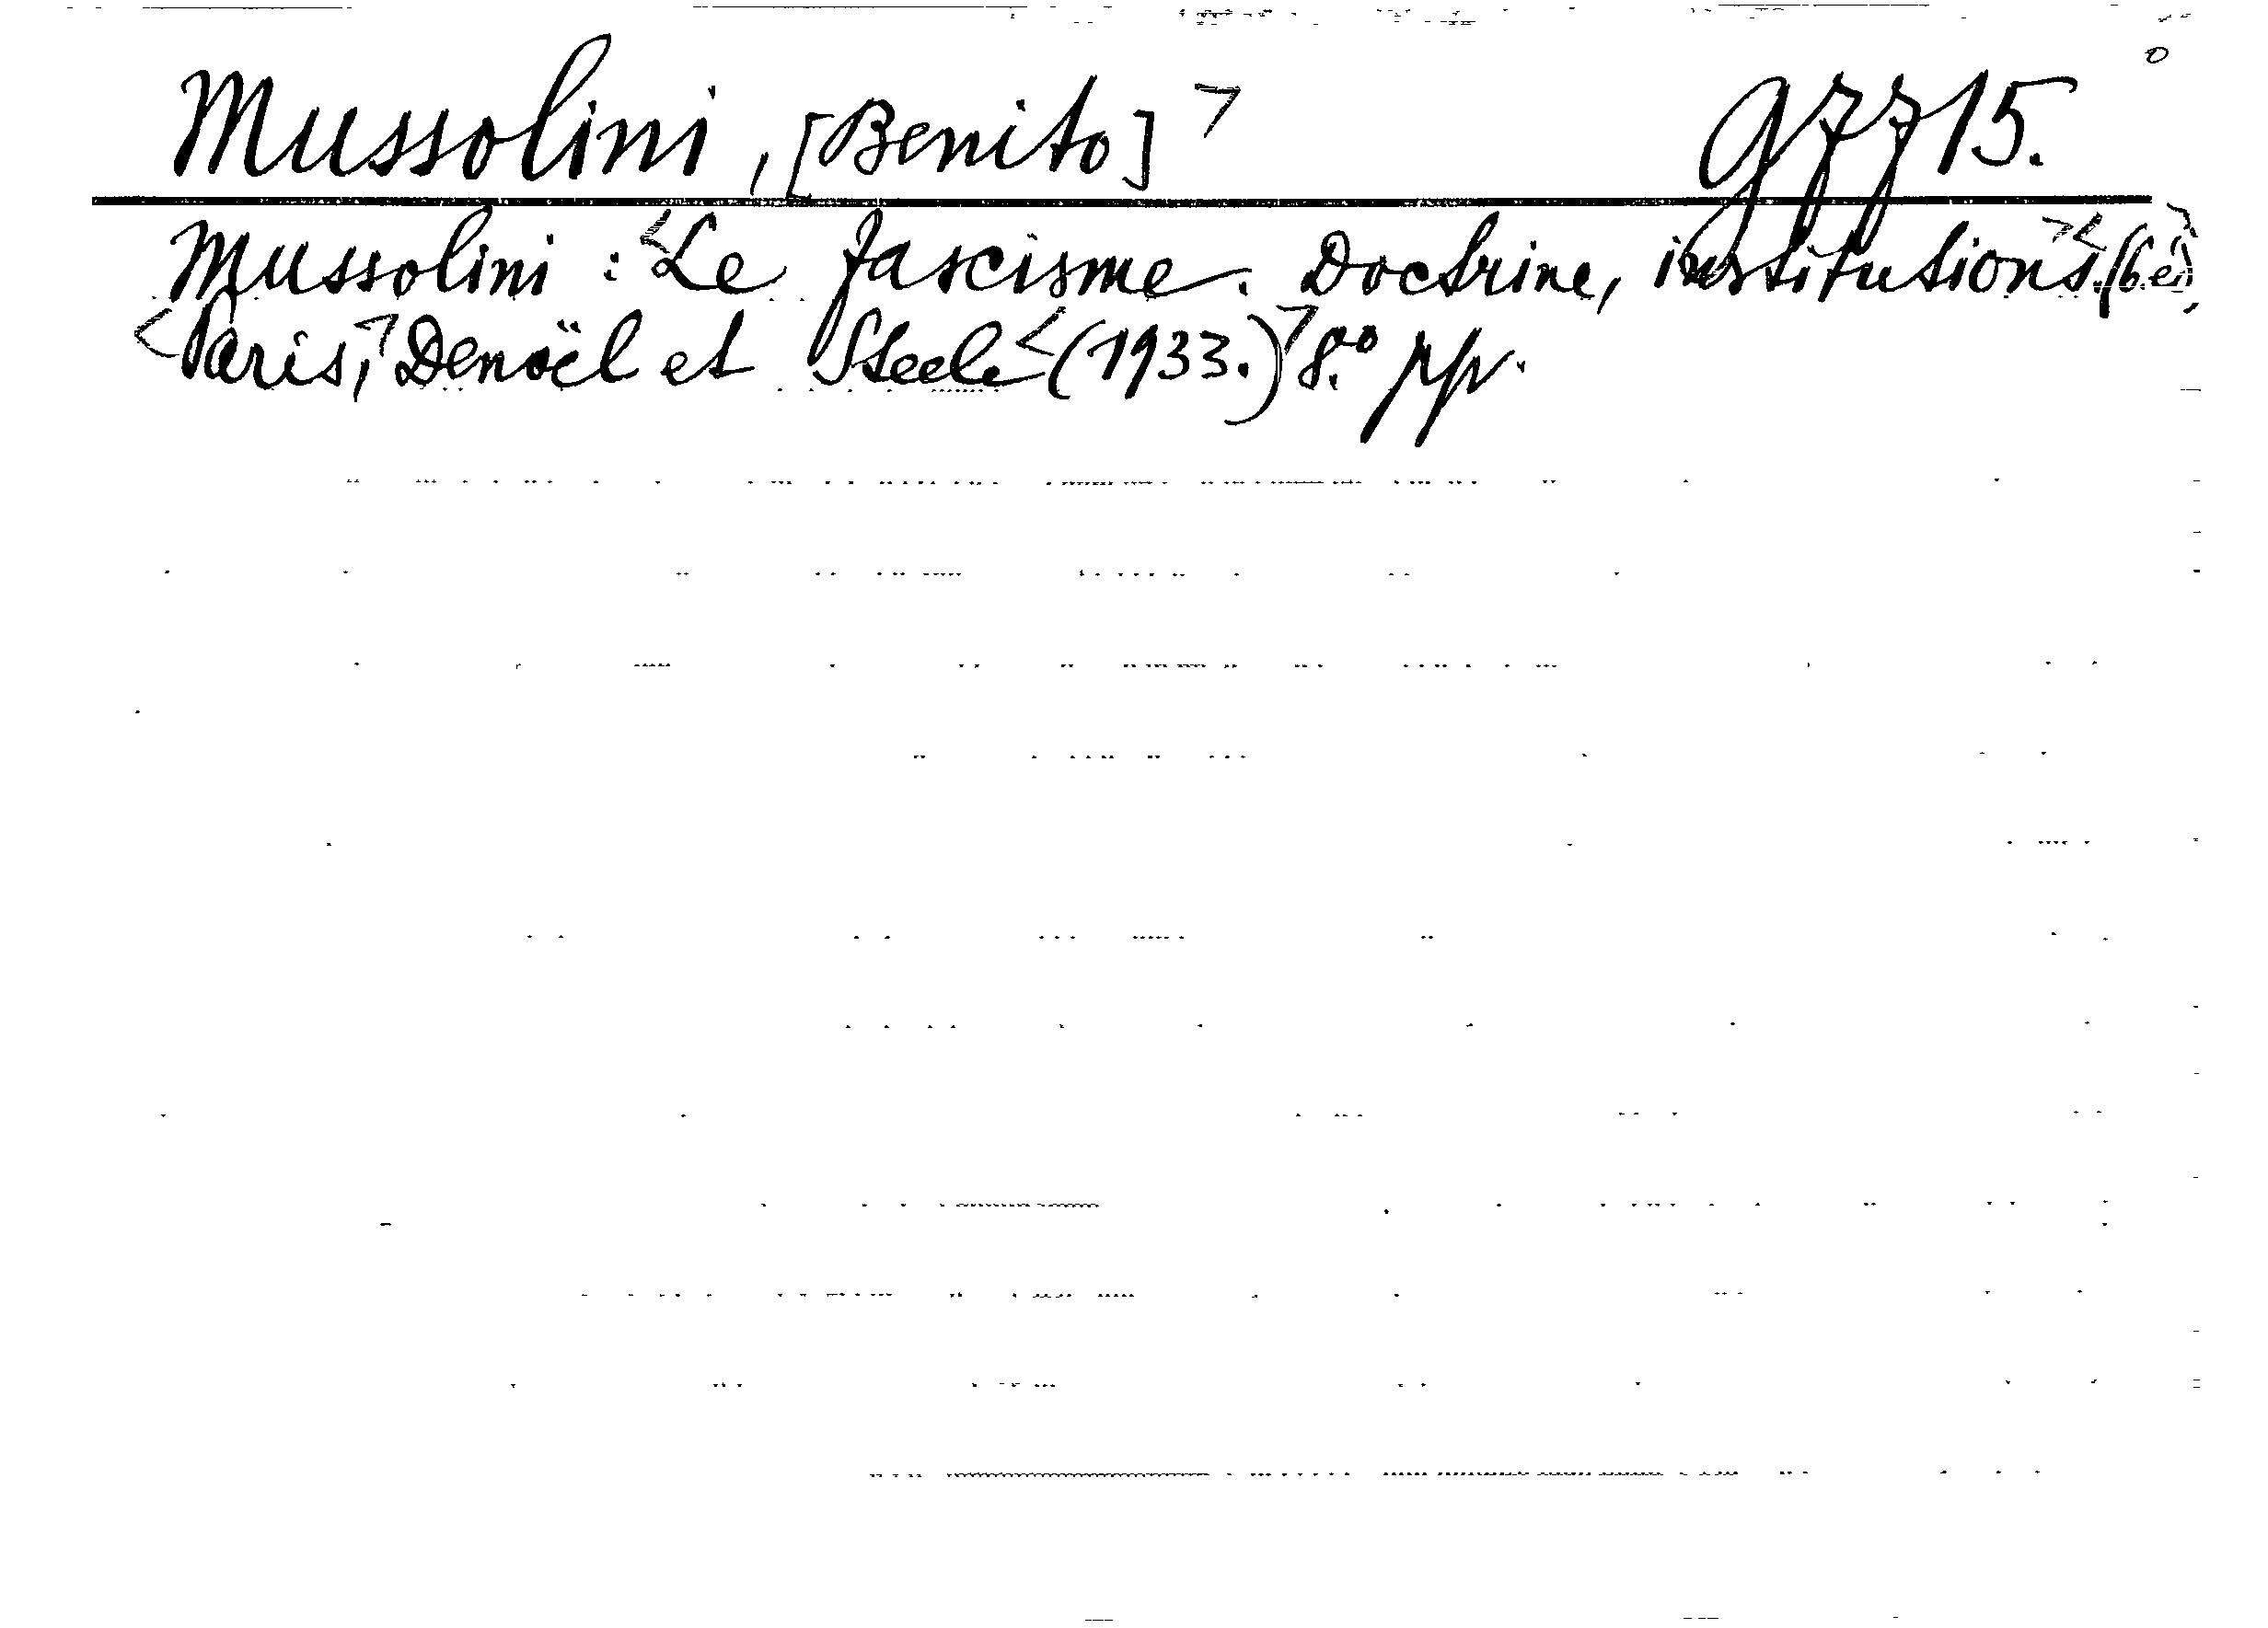 Mussolini, [Benito] 97715.
Mussolini: Le fascisme. Doctrine, institutions. (6e)
Paris, Denoël et Steele (1933.) 8.°